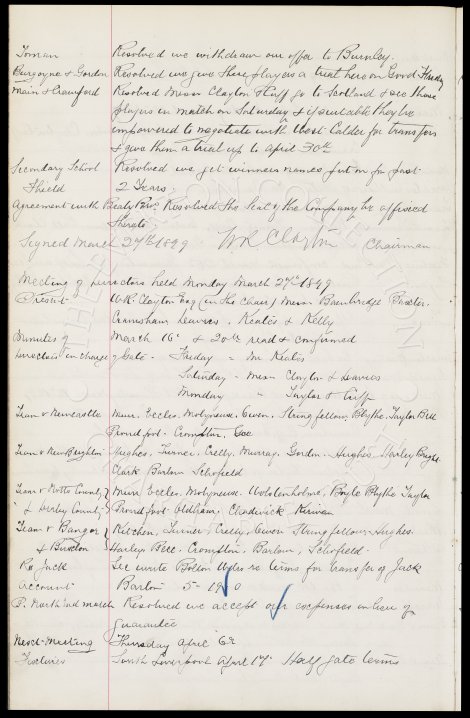 Toman Resolved we withdraw our offer to Burnley.
Burgoyne & Gordon Resolved we give these players a trial here on Good Friday
Main & Crawford Resolved Messrs Clayton & Cuff go to Scotland & see these
players in match on Saturday & if suitable they be
empowered to negotiate with West Calder for transfers
& give them a trial up to April 30th
Secondary School Resolved we get winners names put on for past
Shield 2 Years.
Agreement with Beaty Bros. Resolved the Seal of the Company be affixed
thereto.
Signed March 27th 1899 W R Clayton Chairman
Meeting of Directors held Monday March 27th 1899
Present W.R. Clayton Esq (in the chair) Messrs Bainbridge Baxter.
Coneshaw Leavers. Keates & Kelly
Minutes of March 16th & 20th read & confirmed
Directors in charge of Gate - Friday - Mr Keates
Saturday - Messrs Clayton & Leavers
Monday " Taylor & Cuff
Team v Newcastle Muir. Eccles. Molyneux. Owen. Stringfellow. Blythe. Taylor Bell
Proudfoot - Crompton. Gee
Team v New Brighton Hughes. Turner. Crelly. Murray. Gordon. Hughes. Harley
Clark Barlow Schofield
Team v Notts County, Muir, Eccles. Molyneux. Wolstenholme, Boyle Blythe Taylor
& Derby County, Proudfoot Oldham. Chadwick Kirwan
Team v Bangor Kitchen, Turner. Crelly. Owen Stringfellow. Hughes.
& Buxton Harley Bell. Crompton. Barlow, Schofield.
Re Jack Sec write Bolton Wdrs re terms for transfer of Jack
Account Barton 5 - 19 0
P. North End match Resolved we accept our expenses in lieu of
guarantee
Next Meeting Thursday April 6th
Fixtures South Liverpool April 17th Half gate terms